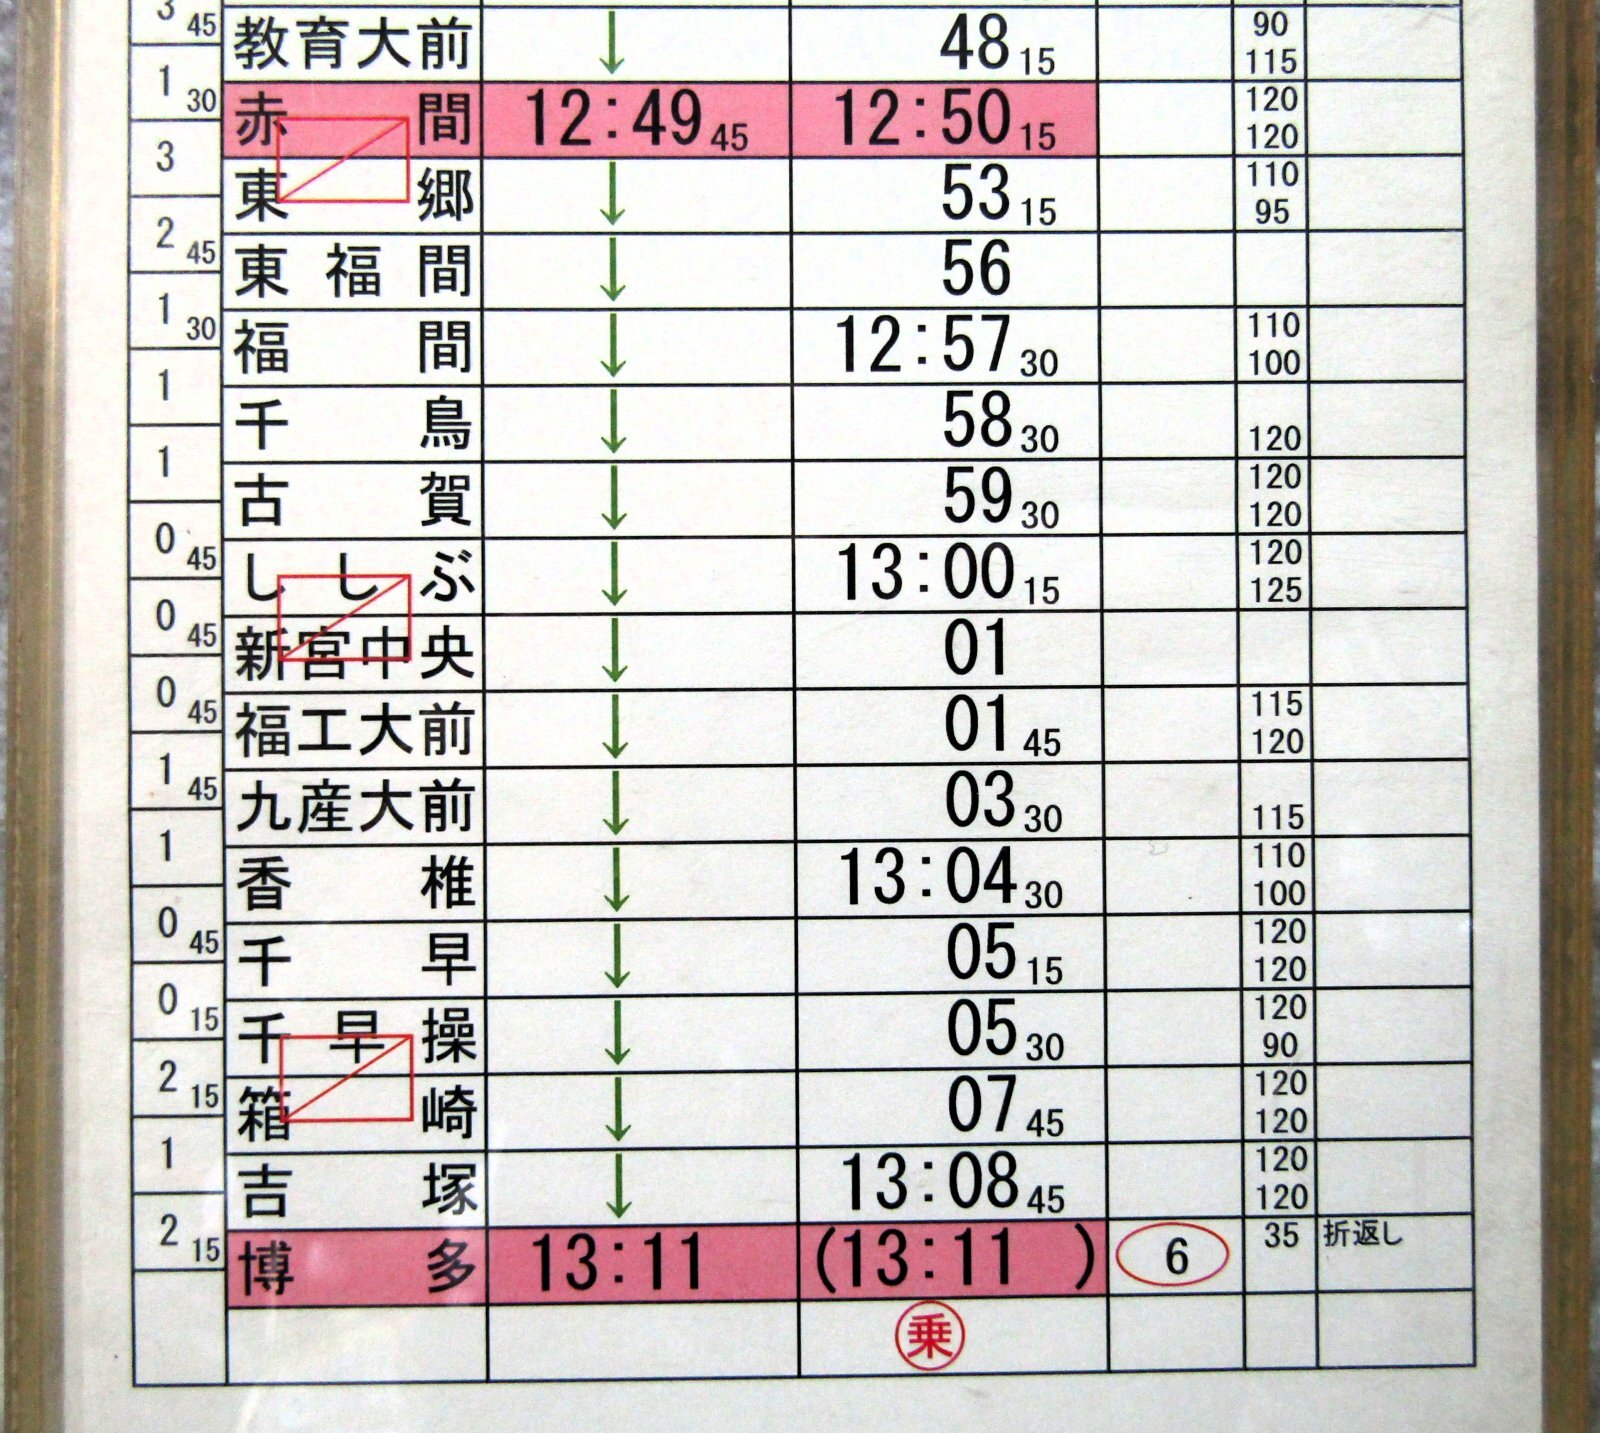 3 45 教育大前 ↓ 48 15 90 115
1 30 赤間 12:49 45 12:50 15 120 120
3 東郷 ↓ 53 15 110 95
2 45 東福間 ↓ 56
1 30 福間 ↓ 12:57 30 110 100
1 千鳥 ↓ 58 30 120
1 古賀 ↓ 59 30 120 120
0 45 ししぶ ↓ 13:00 15 120 125
0 45 新宮中央 ↓ 01
0 45 福工大前 ↓ 01 45 115 120
1 45 九産大前 ↓ 03 30 115
1 香椎 ↓ 13:04 30 110 100
0 45 千早 ↓ 05 15 120 120
0 15 千早操 ↓ 05 30 120 90
2 15 箱崎 ↓ 07 45 120 120
1 吉塚 ↓ 13:08 45 120 120
2 15 博多 13:11 (13:11 ) 6 35 折返し
乗